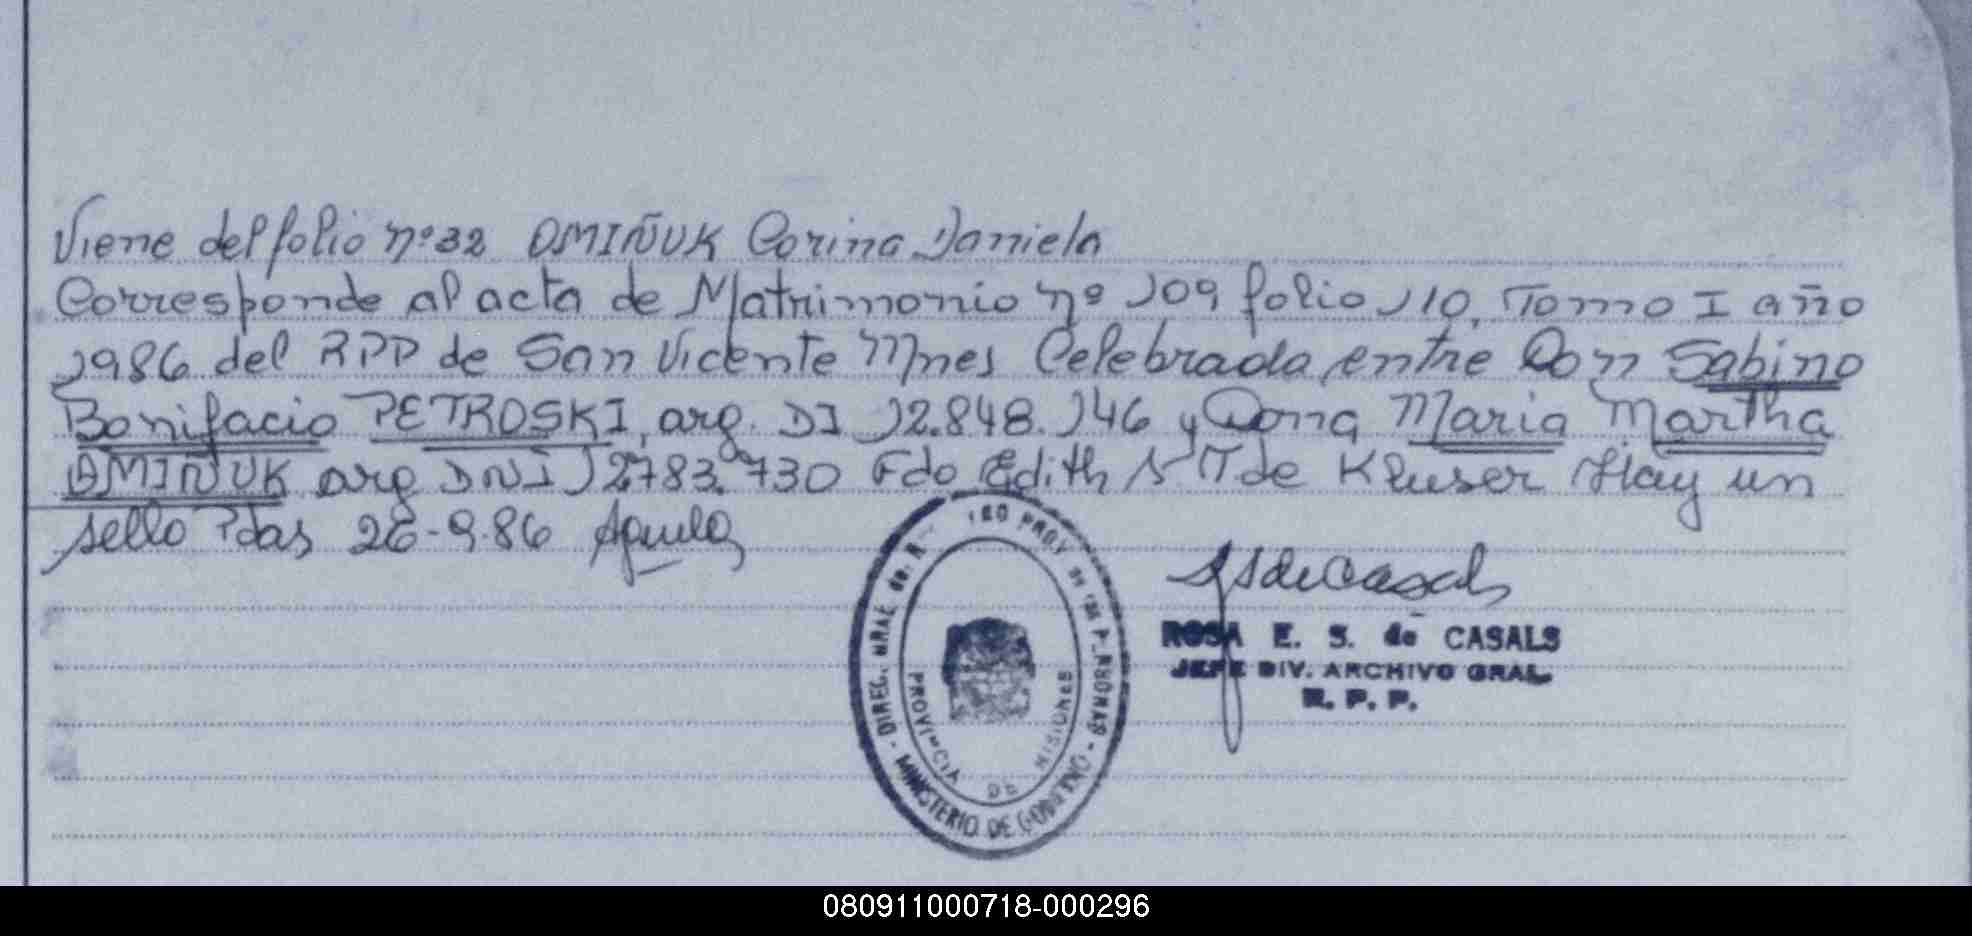 Viene del folio nº 32 OMIÑUK Corina Daniela
Corresponde al acta de Matrimonio nº 109 folio 110, Tomo I año
1986 del RPP de San Vicente Mnes Celebrada entre Don Sabino
Bonifacio PETROSKI, arg. DI 12.848.146 y Dona Maria Martha
OMIÑUK arg DNI 12783.730 Fdo Edith de Kluser Hay un
sello Pdas 26-9-86
de Casals
ROSA E. S. de CASALS
JEFE DIV. ARCHIVO GRAL.
R. P. P.
DIREC. GRAL de R PROV de las PERSONAS - MINISTERIO DE GOBIERNO -
PROVINCIA DE MISIONES
080911000718-000296